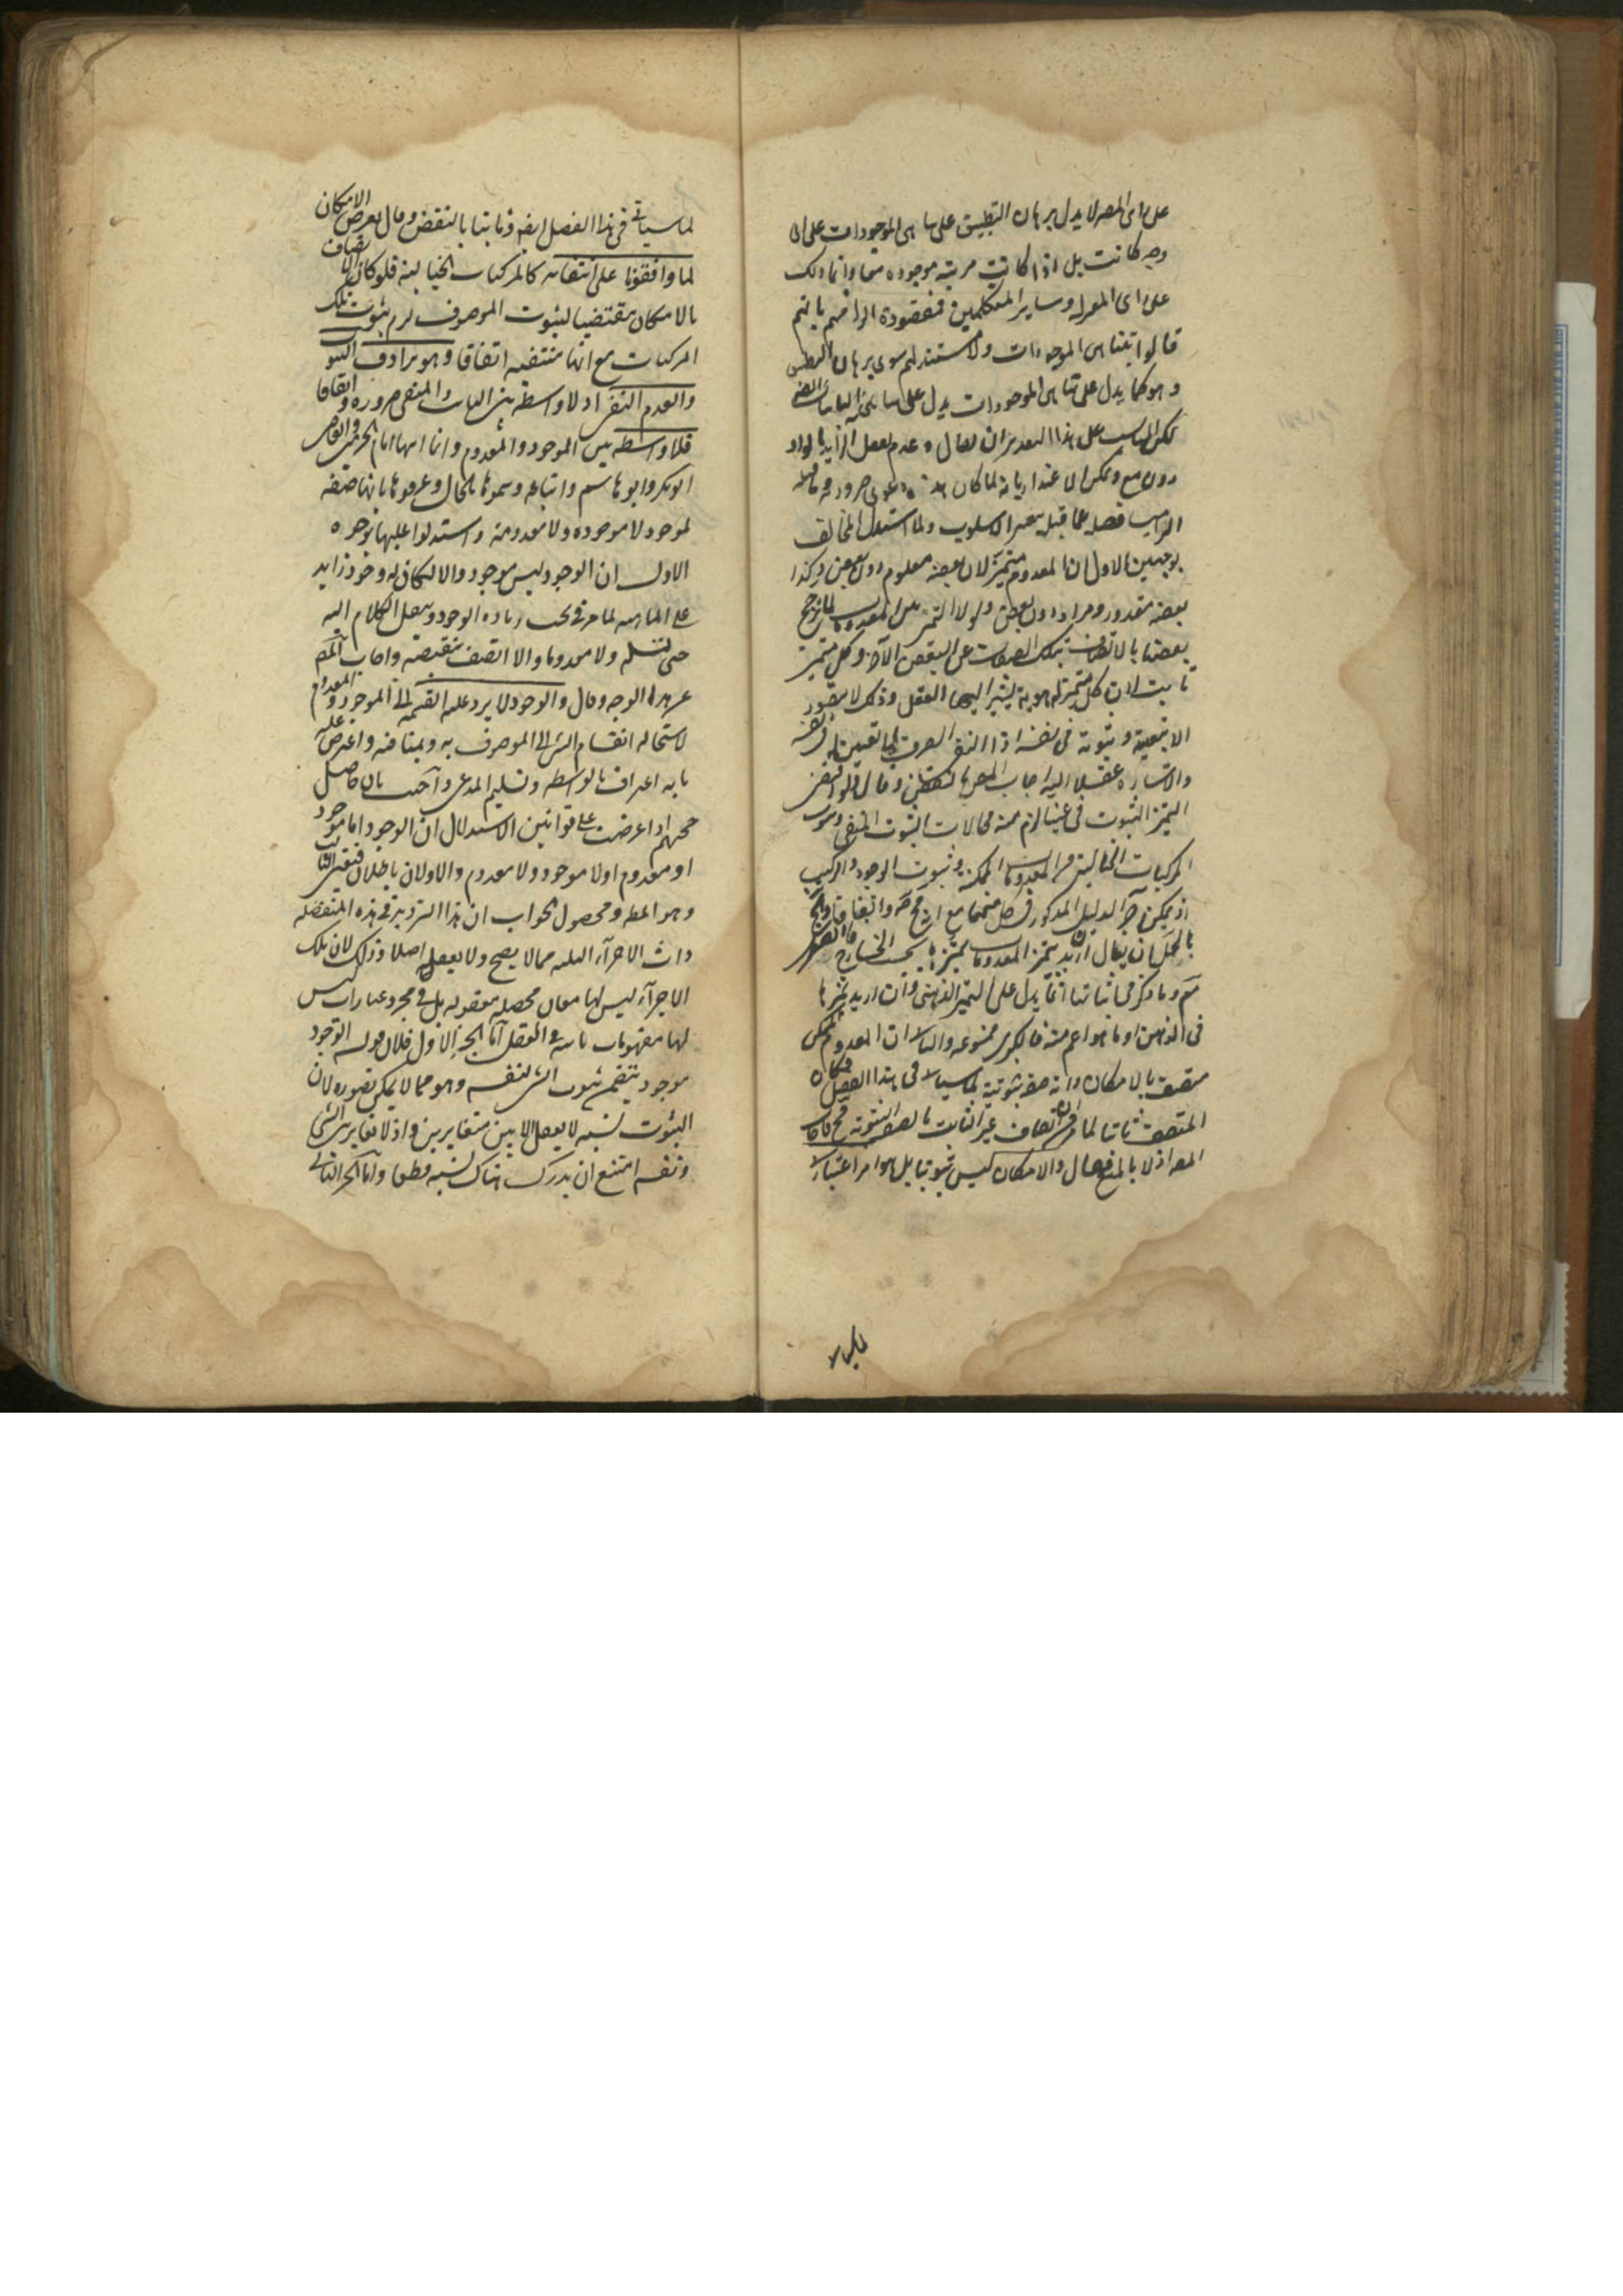 على راى المصه لا يدل برهان التطبيق على تناهى الموجودات على اى
وجه كانت بل اذا كانت مرتبة موجودة معا وانما ذلك
على راى المعتزله وساير المتكلمين فمقصوده الزامهم بانهم
قالوا بتناهى الموجودات ولا مستند لهم سوى برهان التطبيق
وهو كما يدل على تناهى الموجودات يدل على تناهى الثابتات ايضا
لكن المناسب على هذا التقدير ان يقال وعدم تعقل الزايد بالواو
دون مع ويمكن الاعتذار بانه لما كان دعوى ضرورة
الزاميا فصله عما قبله بتغير الاسلوب ولما استدل المخالف
بوجهين الاول ان المعدوم متميز لان بعضه معلوم دون بعض وكذا
بعضه مقدور ومراد دون بعض ولولا التميز بين المعدومات لما ترجح
بعضها بالاتصاف بتلك الصفات عن البعض الآخر وكل متميز
ثابت لان كل متميز له هوية يشير اليها العقل وذلك لا يتصور
الا بتعينه وثبوته فى نفسه اذ النفى الصرف لا تعين له فى نفسه
والاشارة عقلا اليه اجاب المصه بالنقض وقال ولو اقتضى
التميز الثبوت فى عينا لزم منه محالات ثبوت المنفى وثبوت
المركبات الخياليه من المعدومات الممكنة وثبوت الوجود والتركيب
اذ يمكن اجراء الدليل المذكور فى كل منهما مع
بالحل بان يقال ان اريد بتميز المعدومات تميزها بحسب الخارج فالصغرى
مم وما ذكر فى اثباتها انما يدل على التميز الذهنى وان اريد تميزها
فى الذهن او ما هو اعم منه فالكبرى ممنوعه والثانى ان المعدوم الممكن
متصف بالامكان وانه صفة ثبوتية لما سيأتى فى هذا الفصل فكان
المتصف به ثابتا لما مر من ان اتصاف غير الثابت بالصفة الثبوتيه مح فاجاب
المصه اولا بالمنع فقال والامكان ليس ثبوتيا بل هو امر اعتبارى
لما سيأتى فى هذا الفصل ايضا وثانيا بالنقض وقال يعرض الامكان
لما وافقونا على انتفائه كالمركبات الخيالية فلو كان الاتصاف
بالامكان مقتضيا لثبوت الموصوف لزم ثبوت تلك
المركبات مع انها منتفيه اتفاقا وهو يرادف الثبوت
والعدم النفى اذ لا واسطة بين الثابت والمنفى ضرورة واتفاقا
فلا واسطه بين الموجود والمعدوم وانما اثبتها امام الحرمين والقاضى
ابو بكر وابو هاشم واتباعه وسموها بالحال وعرفوها بانها صفه
لموجود لا موجوده ولا معدومة واستدلوا عليها بوجوه
الاول ان الوجود ليس بموجود والا لكان له وجود زايد
على الماهيه لما مر فى بحث زياده الوجود وينقل الكلام اليه
حتى يتسلسل ولا معدوما والا اتصف بنقيضه واجاب المصه
عن هذا الوجه وقال والوجود لا يرد عليه القسمة الى الموجود والمعدوم
لاستحاله انقسام الشى الى الموصوف به وبمنافيه واعترض عليه
بانه اعتراف بالواسطه وتسليم المدعى واجيب بان حاصل
حجتهم اذا عرضت على قوانين الاستدلال ان الوجود اما موجود
او معدوم او لا موجود ولا معدوم والاولان باطلان فتعين الثالث
وهو المط ومحصول الجواب ان هذا الترديد فى هذه المنفصله
ذات الاجزاء الثلثه مما لا يصح ولا يعقل اصلا وذلك لان تلك
الاجزاء ليس لها معان محصله معقوله بل هى مجرد عبارات ليس
لها مفهومات ثابته فى العقل اما الجزء الاول فلان قوله الوجود
موجود يتضمن ثبوت الشى لنفسه وهو مما لا يمكن تصوره لان
الثبوت نسبه لا يعقل الا بين متغايرين واذ لا تغاير بين الشى
ونفسه امتنع ان يدرك هناك نسبه قطعا واما الجزء الثانى